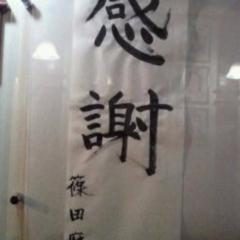 感謝
篠田